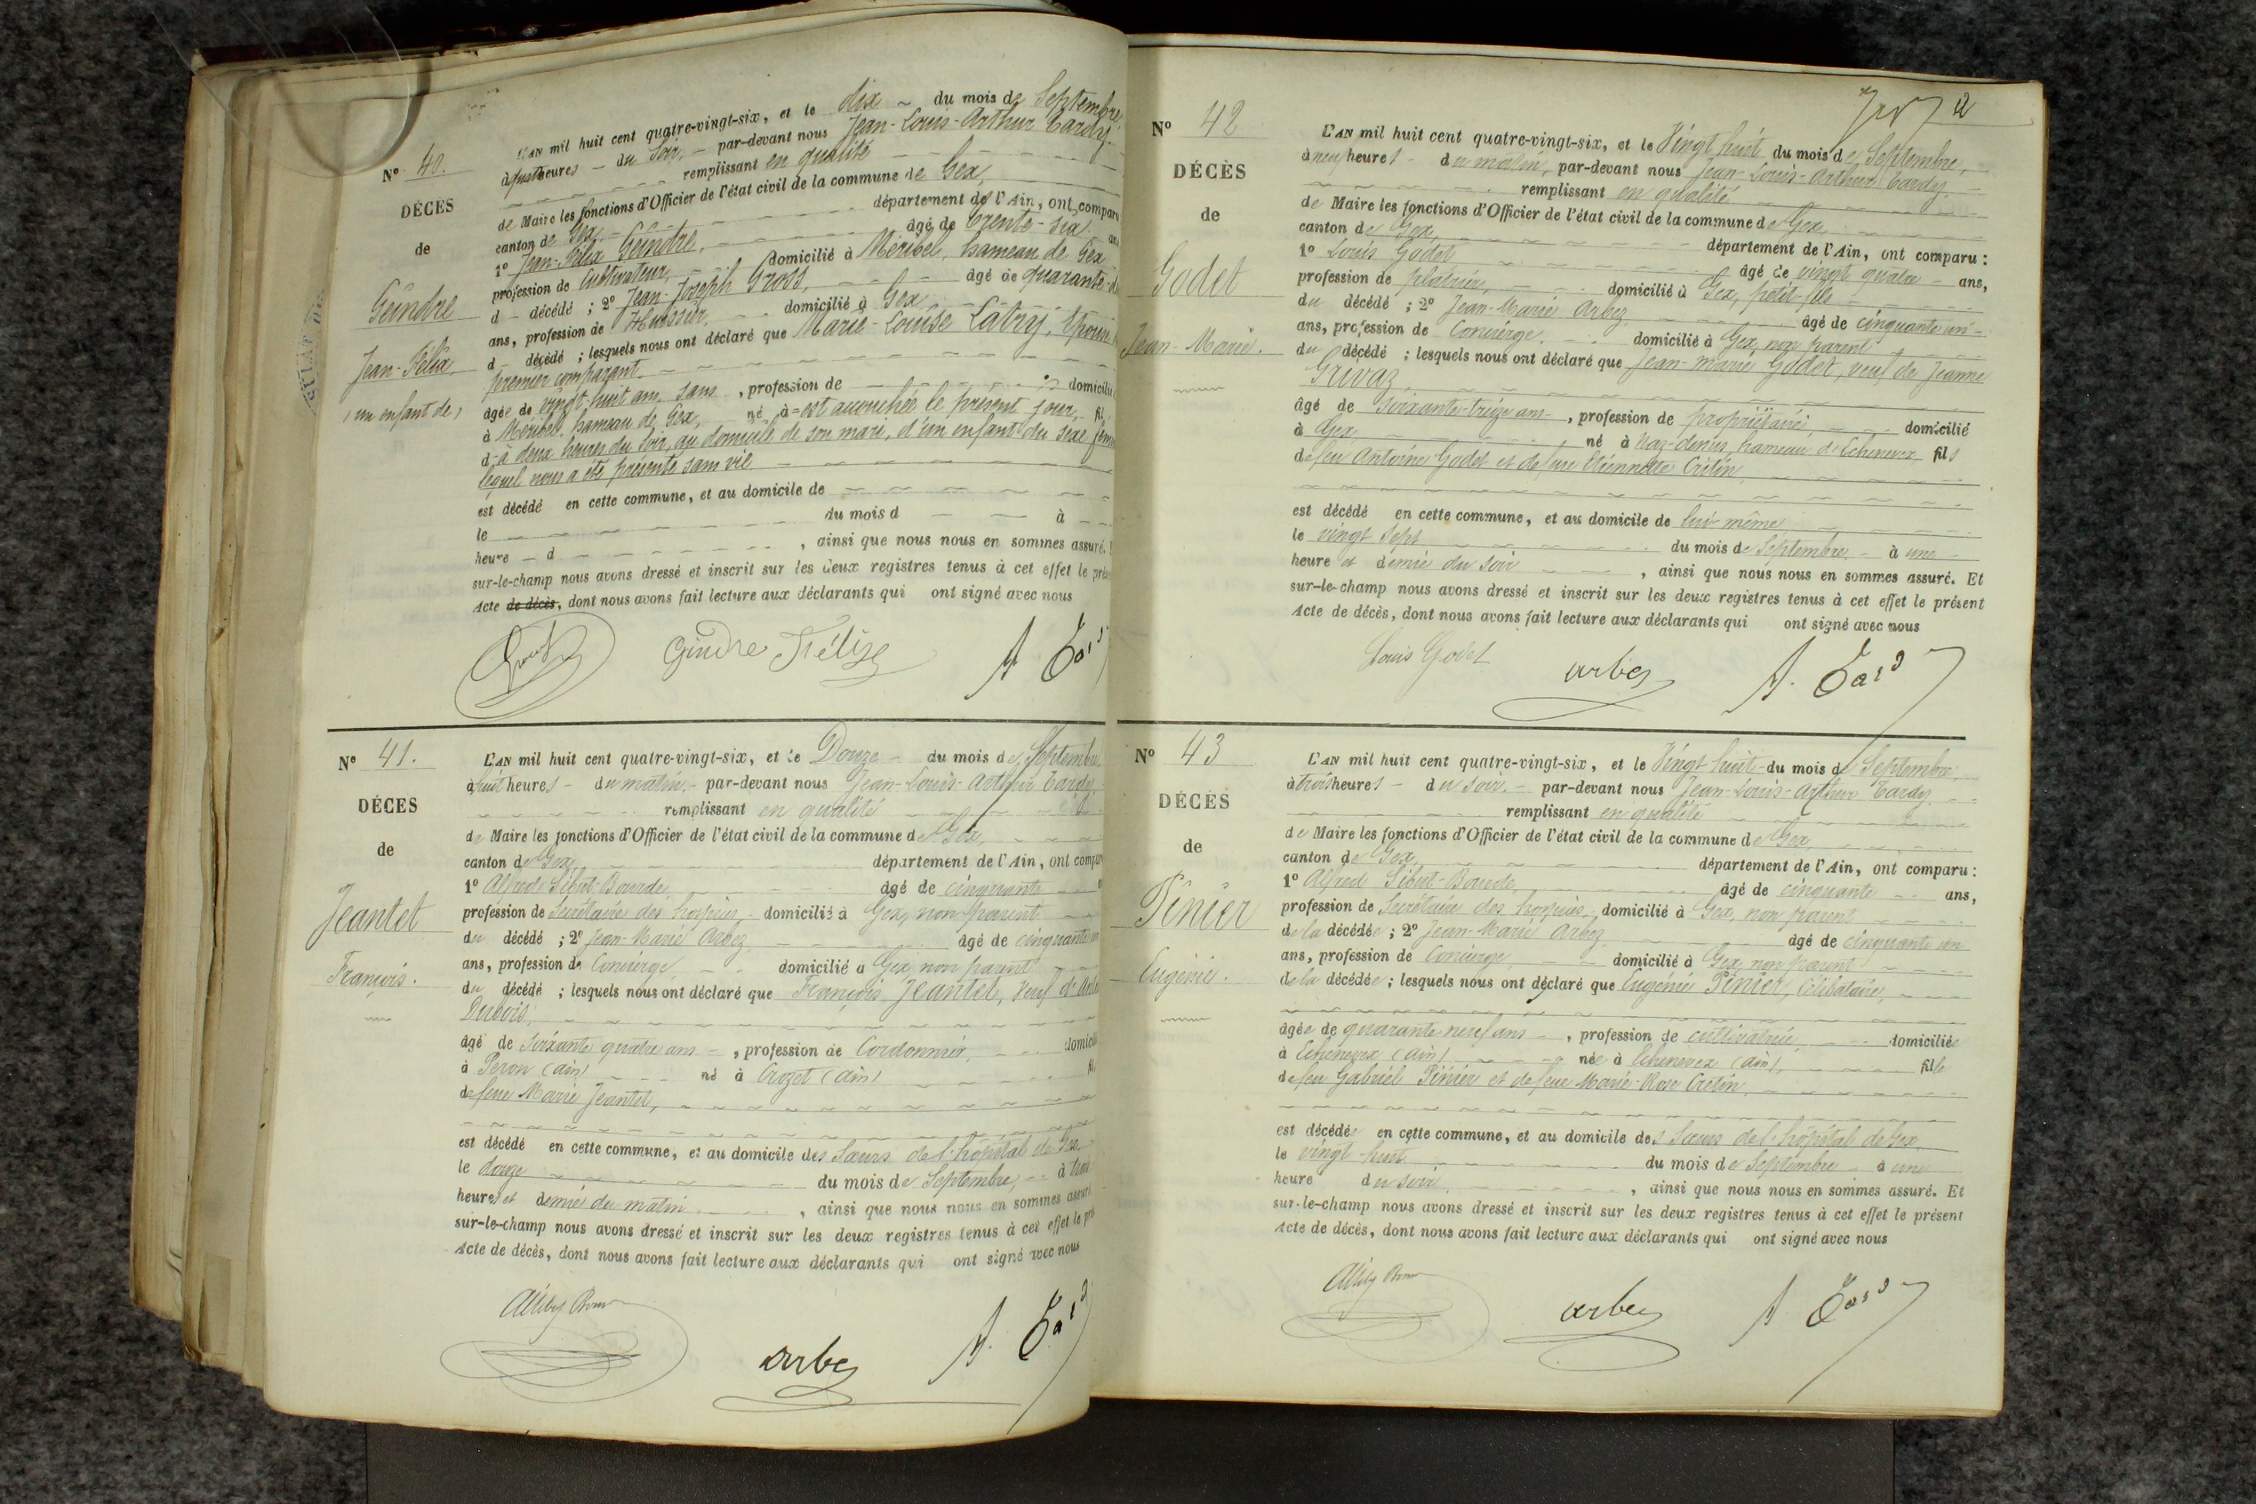 L'AN mil huit cent quatre-vingt-six, et le dix du mois de Septembre
à quatre heures du soir, par-devant nous Jean-Louis-Arthur Tardy.
remplissant en qualité
de Maire les fonctions d'Officier de l'état civil de la commune de Gex,
canton de Gex, département de l'Ain, ont comparu
1º Jean-Félix Geindre, âgé de trente-six ans
profession de Cultivateur, domicilié à Méribel, hameau de Gex
d décédé ; 2º Jean-Joseph Gross, âgé de quarante
ans, profession de Huissier, domicilié à Gex
d décédé ; lesquels nous ont déclaré que Marie-Louise Labry, épouse
premier comparant
âgée de vingt-huit ans, sans, profession de domicilié
à Méribel hameau de Gex, né à = est accouchée le présent jour, fil
d à deux heures du soir, au domicile de son mari, d'un enfant du sexe
lequel nous a été présenté sans vie
est décédé en cette commune, et au domicile de
le du mois d à
heure d , ainsi que nous nous en sommes assuré.
sur-le-champ nous avons dressé et inscrit sur les deux registres tenus à cet effet le
Acte de décès, dont nous avons fait lecture aux déclarants qui ont signé avec nous
Nº 40.
DÉCÈS
de
Geindre
Jean-Félix
(un enfant de)
Gindre Félix
A. Tardy
Nº 41.
DÉCÈS
de
Jeantet
François.
L'AN mil huit cent quatre-vingt-six, et le Douze du mois de Septembre
à huit heures du matin, par-devant nous Jean-Louis-Arthur Tardy,
remplissant en qualité
de Maire les fonctions d'Officier de l'état civil de la commune de Gex,
canton de Gex, département de l'Ain, ont comparu
1º Alfred Sibut-Bourde, âgé de cinquante
profession de Secrétaire des hospices, domicilié à Gex, non parent
du décédé ; 2º Jean-Marie Arbez âgé de cinquante un
ans, profession de Concierge domicilié à Gex, non parent
du décédé ; lesquels nous ont déclaré que François Jeantet, veuf d'
Dubois,
âgé de soixante quatre ans, profession de Cordonnier, domicilié
à Péron (Ain) né à Crozet (Ain) fils
de feue Marie Jeantet,
est décédé en cette commune, et au domicile des Sœurs de l'hôpital de Gex
le douze du mois de Septembre, à trois
heures et demie du matin , ainsi que nous nous en sommes assuré
sur-le-champ nous avons dressé et inscrit sur les deux registres tenus à cet effet le
Acte de décès, dont nous avons fait lecture aux déclarants qui ont signé avec nous
arbez
A. Tardy
Nº 42
DÉCÈS
de
Godet
Jean-Marie.
L'AN mil huit cent quatre-vingt-six, et le Vingt huit du mois de Septembre,
à neuf heures du matin, par-devant nous Jean-Louis-Arthur Tardy.
remplissant en qualité
de Maire les fonctions d'Officier de l'état civil de la commune de Gex
canton de Gex, département de l'Ain, ont comparu :
1º Louis Godet, âgé de vingt quatre ans,
profession de plâtrier, domicilié à Gex, petit-fils
du décédé ; 2º Jean-Marie Arbez âgé de cinquante un
ans, profession de Concierge. domicilié à Gex, non parent
du décédé ; lesquels nous ont déclaré que Jean-Marie Godet, veuf de Jeanne
Grivaz,
âgé de soixante-treize ans, profession de propriétaire, domicilié
à Gex né à Naz-dessus, hameau de Echenevex fils
de feu Antoine Godet et de feue Etiennette Crétin,
est décédé en cette commune, et au domicile de lui-même
le vingt sept du mois de Septembre à une
heure et demie du soir , ainsi que nous nous en sommes assuré. Et
sur-le-champ nous avons dressé et inscrit sur les deux registres tenus à cet effet le présent
Acte de décès, dont nous avons fait lecture aux déclarants qui ont signé avec nous
Louis Godet
arbez
A. Tardy
Nº 43
DÉCÈS
de
Pinier
Eugénie.
L'AN mil huit cent quatre-vingt-six, et le Vingt huit du mois de Septembre
à trois heures du soir, par-devant nous Jean-Louis-Arthur Tardy
remplissant en qualité
de Maire les fonctions d'Officier de l'état civil de la commune de Gex
canton de Gex, département de l'Ain, ont comparu :
1º Alfred Sibut-Bourde, âgé de cinquante ans,
profession de Secrétaire des hospices, domicilié à Gex, non parent
de la décédée ; 2º Jean-Marie Arbez âgé de cinquante un
ans, profession de Concierge, domicilié à Gex, non parent
de la décédée ; lesquels nous ont déclaré que Eugénie Pinier, Célibataire,
âgée de quarante neuf ans, profession de cultivatrice, domiciliée
à Echenevex (Ain) née à Echenevex (Ain), fille
de feu Gabriel Pinier et de feue Marie-Rose Crétin
est décédée en cette commune, et au domicile des Sœurs de l'hôpital de Gex,
le vingt-huit du mois de Septembre à une
heure du soir, , ainsi que nous nous en sommes assuré. Et
sur-le-champ nous avons dressé et inscrit sur les deux registres tenus à cet effet le présent
Acte de décès, dont nous avons fait lecture aux déclarants qui ont signé avec nous
arbez
A. Tardy